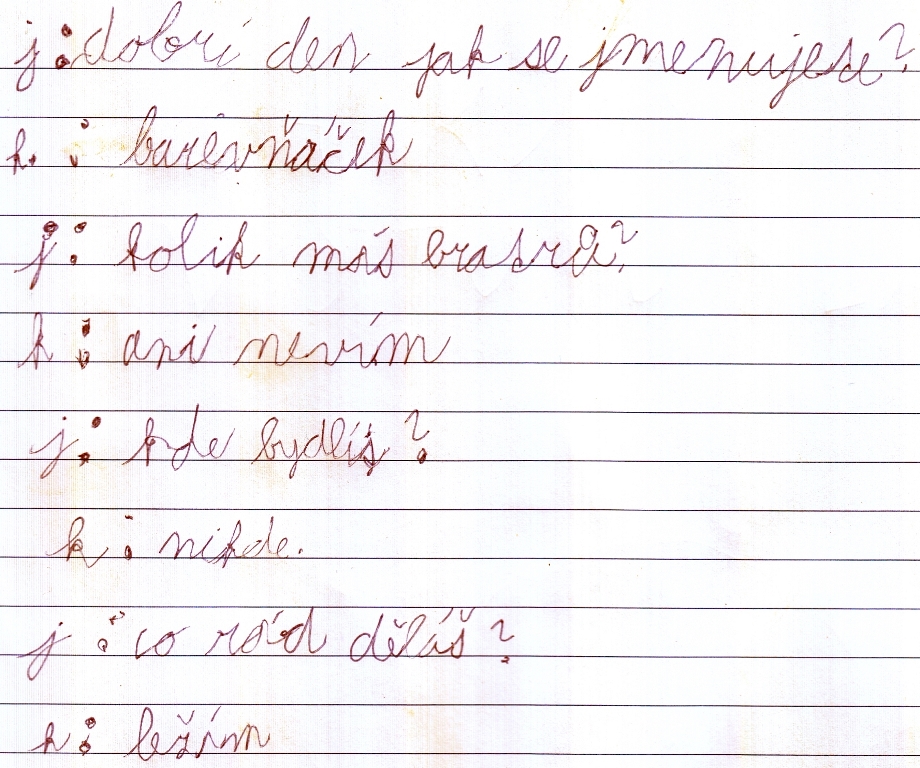 j: dobrí den jak se jmenuješ?
k: barevňáček
j: kolik máš bratrů?
k: ani nevím
j: kde bydlíš?
k: nikde.
j: co rád děláš?
k: ležím